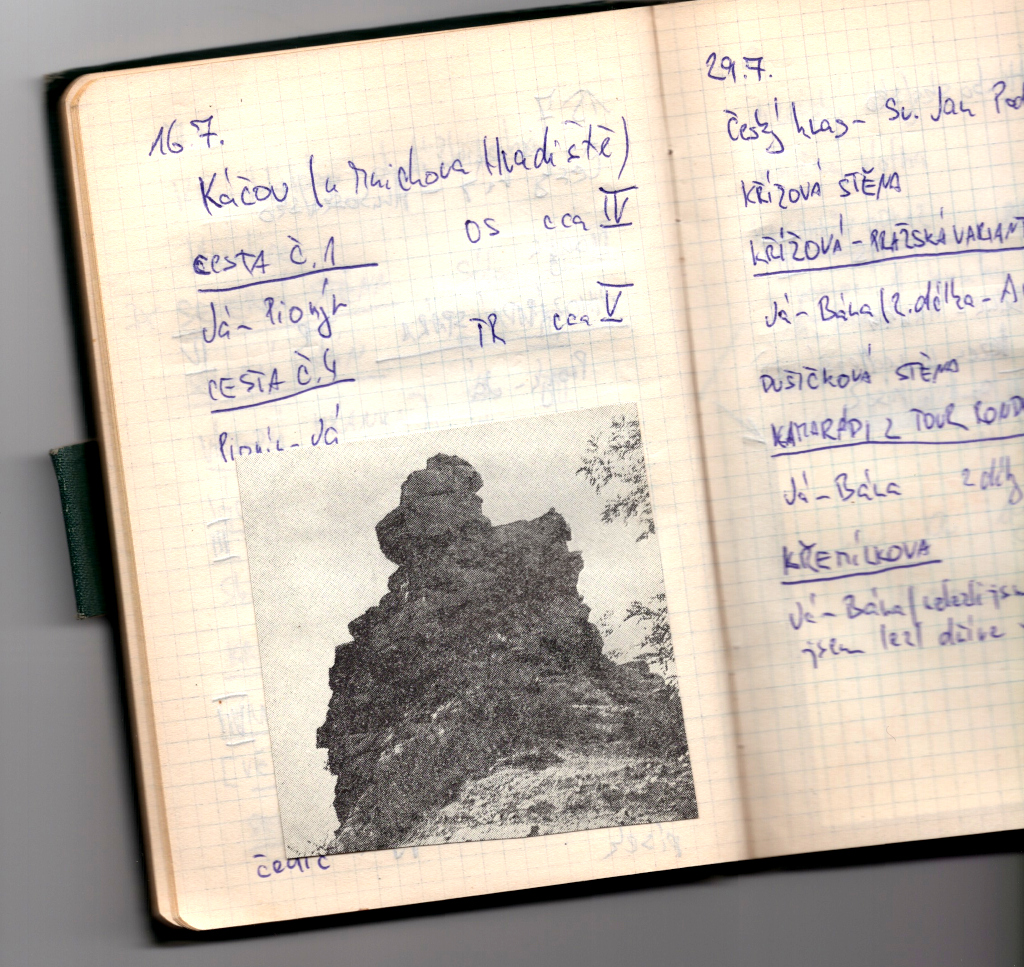 16.7.
Káčov (u Mnichova Hradiště)
CESTA Č.1 OS cca IV
Já - Pionýr
CESTA Č.4 TR cca V
Pionýr - Já
čedič
29.7.
Český kras - Sv. Jan Pod
KŘÍŽOVÁ STĚNA
KŘÍŽOVÁ - PRAŽSKÁ VARIANT
Já - Bára (2. délka - A
DUŠIČKOVÁ STĚNA
KAMARÁDI Z TOUR ROND
Já - Bára 2 dél
KŘEMÍLKOVA
Já - Bára
jsem lezl dříve